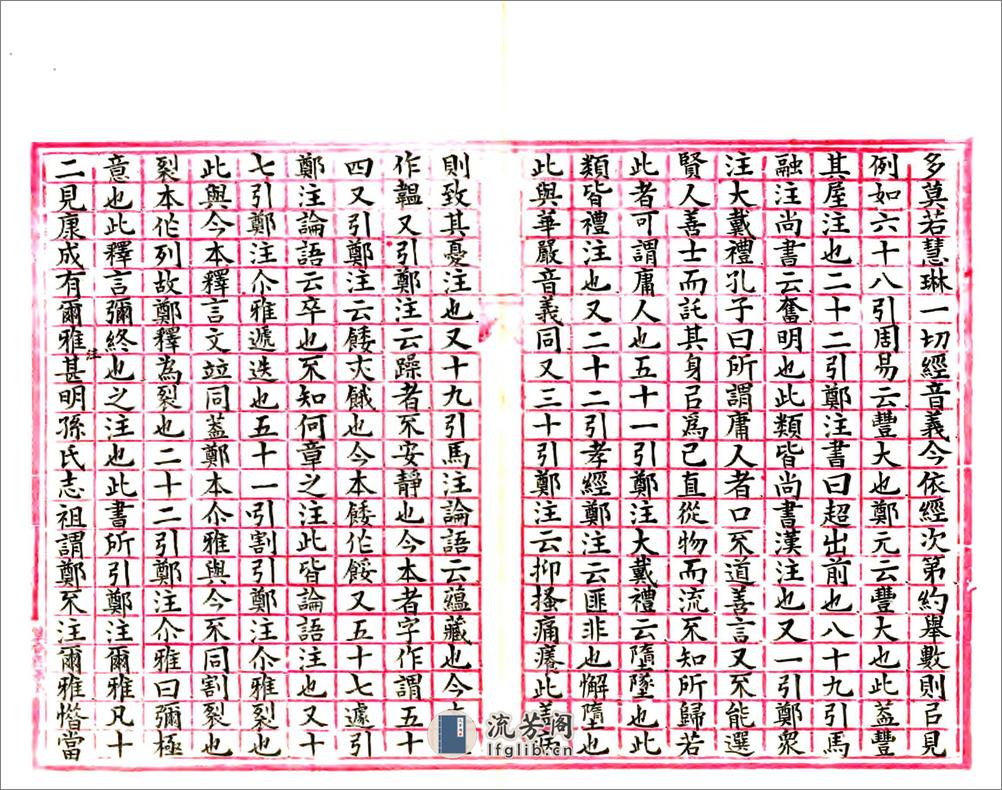 多莫若慧琳一切經音義今依經次第約舉數則㠯見
例如六十八引周易云豐大也鄭元云豐大也此葢豐
其屋注也二十二引鄭注書曰超出前也八十九引馬
融注尚書云奮明也此類皆尚書漢注也又一引鄭眾
注大戴禮孔子曰所謂庸人者口不道善言又不能選
賢人善士而託其身㠯爲己直從物而流不知所歸若
此者可謂庸人也五十一引鄭注大戴禮云墮墜也此
類皆禮注也又二十二引孝經鄭注云匪非也懈墮也
此與華嚴音義同又三十引鄭注云抑搔痛癢此
則致其憂注也又十九引馬注論語云蘊藏也今
作韞又引鄭注云躁者不安靜也今本者字作謂五十
四又引鄭注云餧亦餓也今本餧作餒又五十七遽引
鄭注論語云卒也不知何章之注此皆論語注也又十
七引鄭注尒雅遞迭也五十一引割引鄭注尒雅裂也
此與今本釋言文竝同葢鄭本尒雅與今不同割裂也
裂本作列故鄭釋為裂也二十二引鄭注尒雅曰彌極
意也此釋言彌終也之注也此書所引鄭注爾雅凡十
二見康成有爾雅注甚明孫氏志祖謂鄭不注爾雅惜當
流芳阁
lfglib.cn